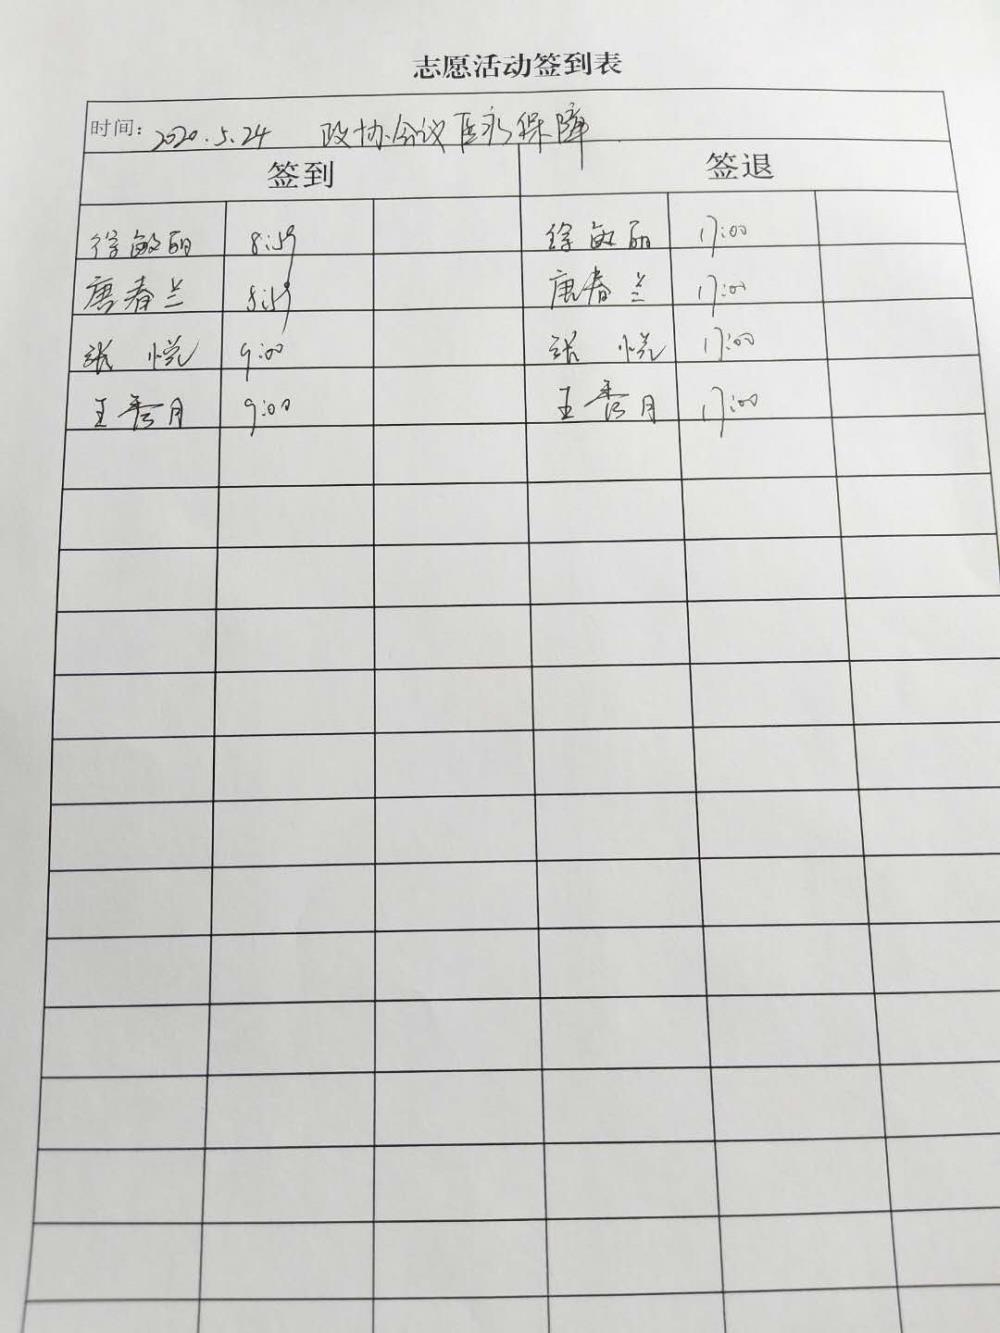 志愿活动签到表
时间: 2020.5.24 政协会议医疗保障
签到 签退
徐敏丽 8:59 徐敏丽 17:00
唐春兰 8:59 唐春兰 17:00
张悦 9:00 张悦 17:00
王秀月 9:00 王秀月 17:00